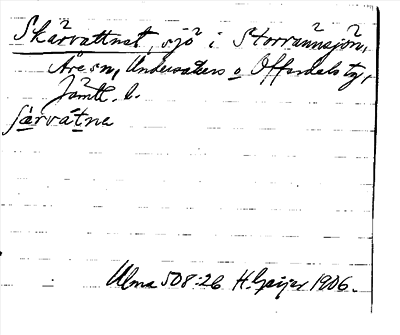 Skärvattnet, sjö i Storrännsjön,
Åre sn, Undersåkers o Offerdals tg,
Jämtl. l.
ʃärvátnə
Ulma 508:26 H. Geijer 1906.